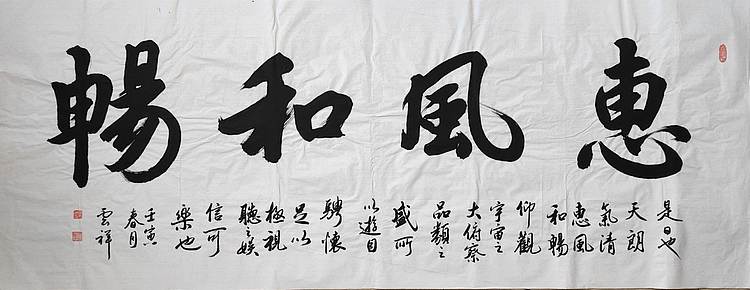 惠風和暢
是日也
天朗
氣清
惠風
和暢
仰觀
宇宙之
大俯察
品類之
盛所
以遊目
騁懷
足以
極視
聽之娛
信可
樂也
壬寅
春月
雲祥